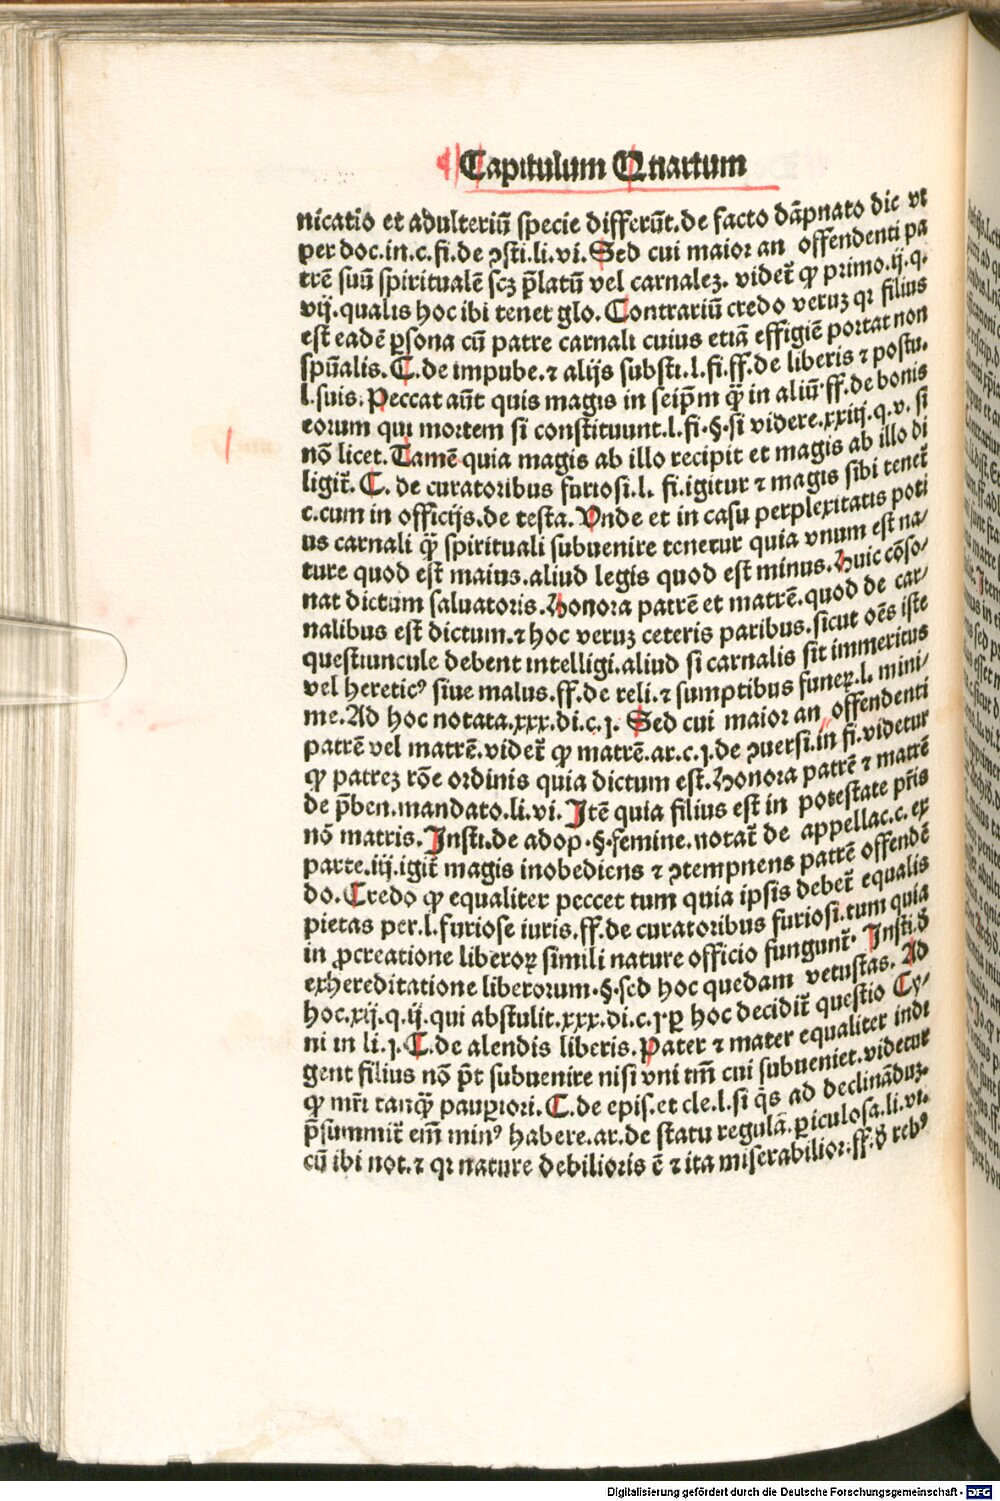 Capitulum Quartum
nicatio et adulteriū specie differūt.de facto dāpnato dic vt
per doc.in.c.fi.de ꝯsti.li.vi.Sed cui maior an offendenti pa
trē suū spiritualē scꝫ p̄latū vel carnalez. videt̄ ꝙ primo.ij.q.
vij.qualis hoc ibi tenet glo.Contrariū credo veruꝫ qꝛ filius
est eadē ꝑsona cū patre carnali cuius etiā effigiē portat non
spūalis.C.de impube.⁊ alijs substi.l.fi.ff.de liberis ⁊ postu.
l.suis.Peccat aūt quis magis in seip̄m q̄ꝫ in aliū.ff.de bonis
eorum qui mortem si constituunt.l.fi.§.si videre.xxiij.q.v.si
nō licet.Tamē quia magis ab illo recipit et magis ab illo di
ligit̄.C.de curatoribus furiosi.l.fi.igitur ⁊ magis sibi tenet̄
c.cum in officijs.de testa.Vnde et in casu perplexitatis poti
us carnali q̄ꝫ spirituali subuenire tenetur quia vnum est na/
ture quod est maius.aliud legis quod est minus.Huic cōso/
nat dictum saluatoris.Honora patrē et matrē.quod de car/
nalibus est dictum.⁊ hoc veruꝫ ceteris paribus.sicut oēs iste
questiuncule debent intelligi.aliud si carnalis sit immeritus
vel hereticꝰ siue malus.ff.de reli.⁊ sumptibus funeꝝ.l.mini/
me.Ad hoc notata.xxx.di.c.j.Sed cui maior an offendenti
patrē vel matrē.videt̄ ꝙ matrē.ar.c.j.de ꝯuersi.in fi.videtur
ꝙ patrez rōe ordinis quia dictum est.Honora patrē ⁊ matrē
de p̄ben.mandato.li.vi.Itē quia filius est in potestate pr̄is
nō matris.Insti.de adop.§.femine.notat̄ de appellac.c.ex
parte.iij.igit̄ magis inobediens ⁊ ꝯtempnens patrē offendē
do.Credo ꝙ equaliter peccet tum quia ipsis debet̄ equalis
pietas per.l.furiose iuris.ff.de curatoribus furiosi.tum quia
in ꝓcreatione liberoꝝ simili nature officio fungunt̄.Insti.ḋ
exhereditatione liberorum.§.sed hoc quedam vetustas.Ad
hoc.xij.q.ij.qui abstulit.xxx.di.c.j.ꝑ hoc decidit̄ questio Cy/
ni in li.j.C.de alendis liberis.Pater ⁊ mater equaliter indi
gent filius nō p̄t subuenire nisi vni tm̄ cui subueniet.videtur
ꝙ mr̄i tanq̄ꝫ pauꝑiori.C.de epis.et cle.l.si q̄s ad declināduꝫ.
p̄summit̄ em̄ minꝰ habere.ar.de statu regulā.ꝑiculosa.li.vi.
cū ibi not.⁊ qꝛ nature debilioris ē ⁊ ita miserabilior.ff.ḋ rebꝰ
Digitalisierung gefördert durch die Deutsche Forschungsgemeinschaft - DFG